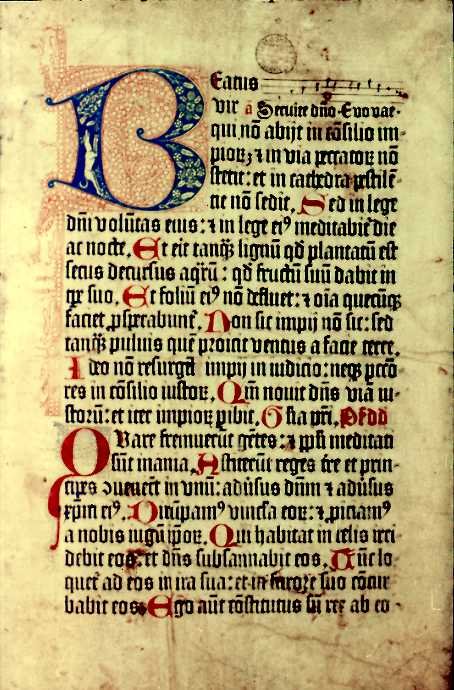 Beatus
vir a Seruite dño. Euouae.
qui nõ abijt in cõsilio im-
pioꝝ ⁊ in via peccatoꝝ nõ
stetit: et in cathedra pestilẽ-
tie nõ sedit. Sed in lege
dñi volũtas eius: ⁊ in lege eiꝰ meditabit̃ die
ac nocte. Et erit tanqꝫ lignũ qd̓ plantatũ est
secus decursus aqꝝ̃: qd̓ fructũ suũ dabit in
tꝑe suo. Et foliũ eiꝰ nõ defluet: ⁊ oĩa quecũqꝫ
faciet ꝓsperabunt̃. Non sic impij nõ sic: sed
tanqꝫ puluis quẽ proicit ventus a facie terre.
Ideo nõ resurgẽt impij in iudicio: neqꝫ pctõ
res in cõsilio iustoꝝ. Qm̃ nouit dñs viã iu-
storũ: et iter impioꝝ ꝑibit. Gl̃ia pr̃i.
Quare fremuerũt gẽtes: ⁊ ppl̃i meditati
sũt inania. Astiterũt reges tr̃e et prin-
cipes ꝯuenerũt in vnũ: aduˀsus dñm ⁊ aduˀsus
xp̃m eiꝰ. Dirũpamꝰ vincl̃a eoꝝ: ⁊ ꝓiciamꝰ
a nobis iugũ ip̃oꝝ. Qui habitat in celis irri
debit eos: et dñs subsannabit eos. Tũc lo
quet̃ ad eos in ira sua: et in furore suo cõtur
babit eos. Ego aũt cõstitutus sũ rex ab eo